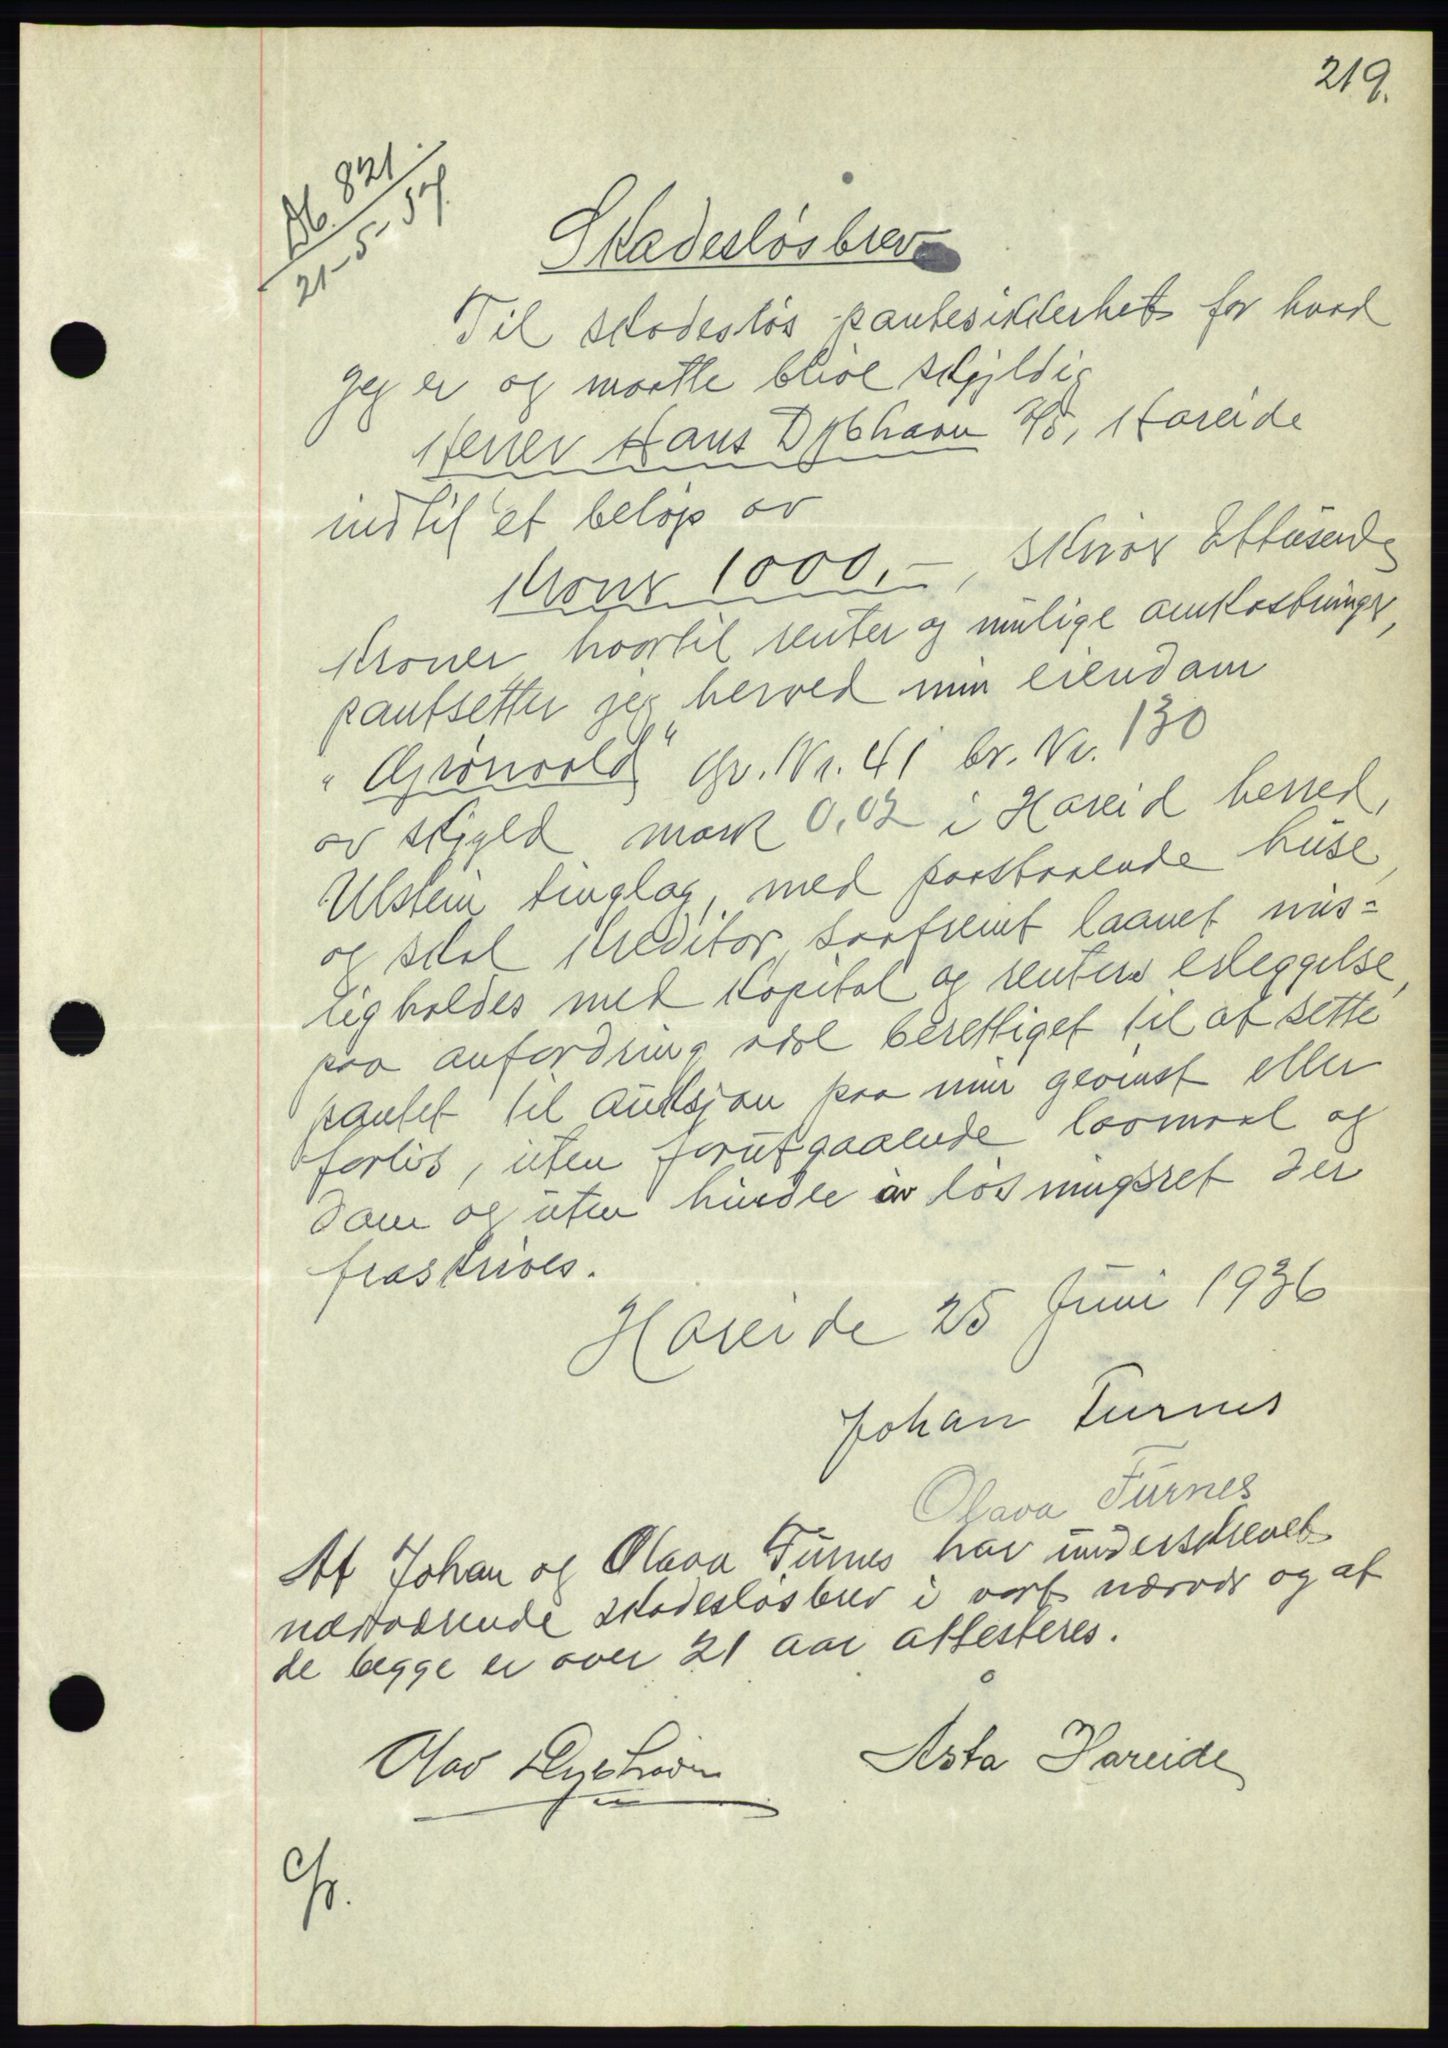 219.
Db. 821
21-5-37.
Skadesløsbrev
Til skadesløs pantesikkerhet for hvad
jeg er og maatte blive skyldig
Herrer Hans Dybhavn A/S, Hareide
indtil et beløp av
Kroner 1000,-, skriver Ettusende
Kroner hvortil renter og mulige omkostninger,
pantsetter jeg herved min eiendom
"Grönvold" gr. Nr. 41 br. Nr. 130
av skyld mark 0,02 i Hareid herred,
Ulstein tinglag, med paastaaende huse,
og skal Kreditor, saafremt laanet mis=
ligholdes med Kapital og renters erleggelse,
paa anfordring være berettiget til at sette
pantet til auksjon paa min gevinst eller
forlis, uten forutgaaende lovmaal og
dom og uten hinder av løsningsret der
fraskrives.
Hareide 25 Juni 1936
Johan Furnes
Olava Furnes
At Johan og Olava Furnes har underskrevet
nærværende skadesløsbrev i vort nærvær og at
de begge er over 21 aar attesteres.
Olav Dybhavn
Asta Hareide